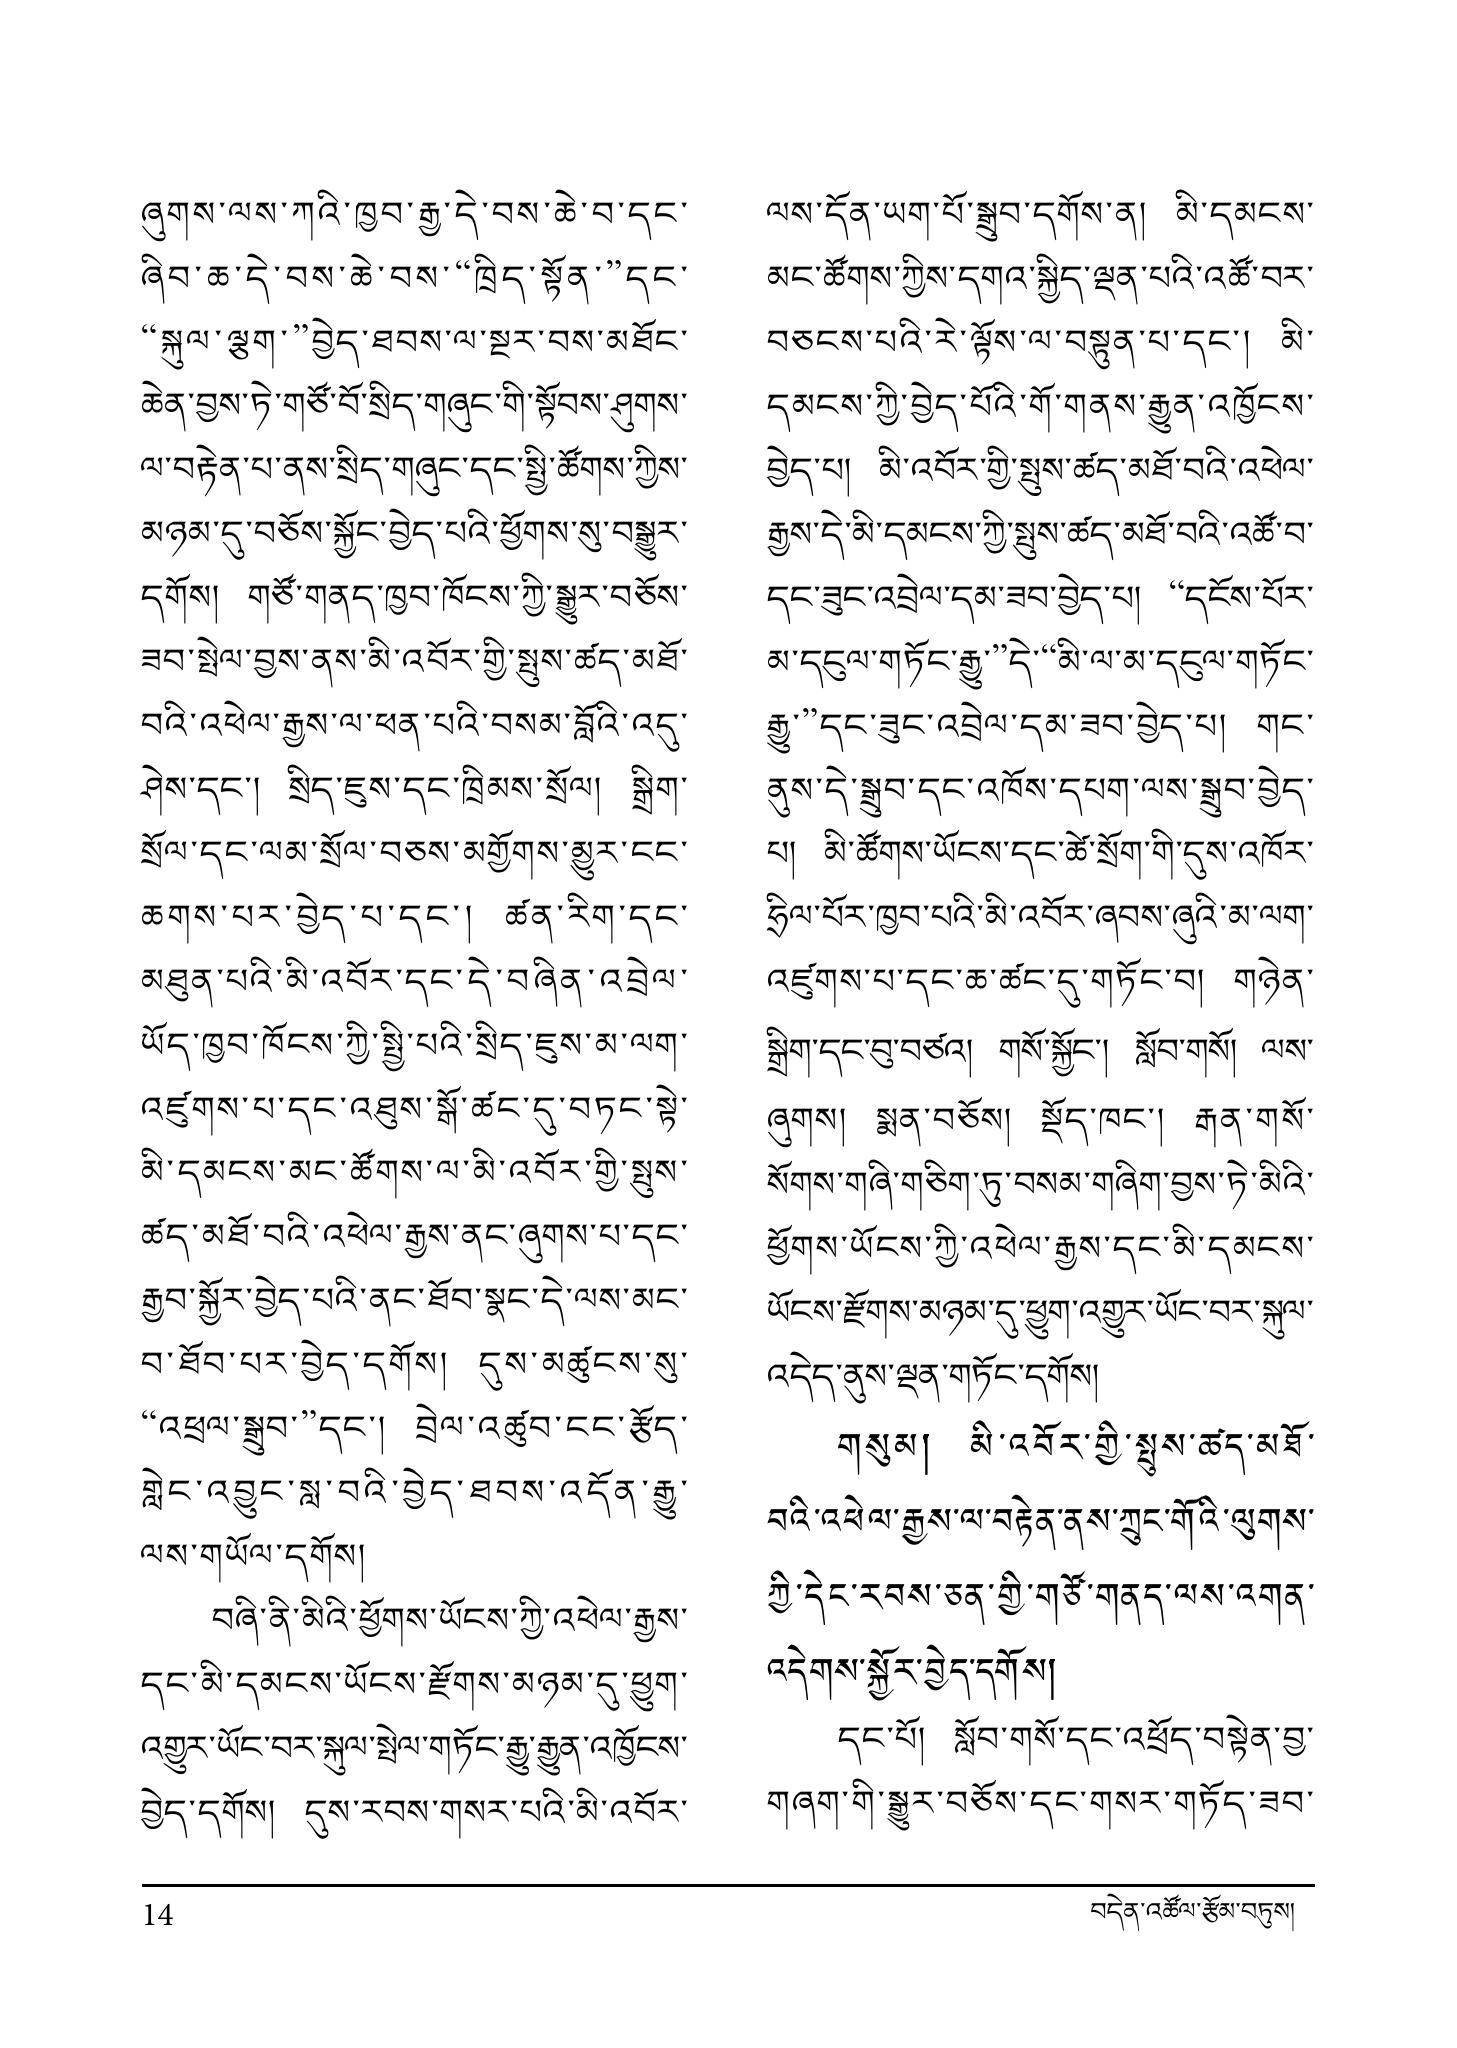 ཞུགས་ལས་ཀའི་ཁྱབ་རྒྱ་དེ་བས་ཆེ་བ་དང་
ཞིབ་ཆ་དེ་བས་ཆེ་བས་“ཁྲིད་སྟོན་”དང་
“སྐུལ་ལྕག་”བྱེད་ཐབས་ལ་སྔར་བས་མཐོང་
ཆེན་བྱས་ཏེ་གཙོ་བོ་སྲིད་གཞུང་གི་སྟོབས་ཤུགས་
ལ་བརྟེན་པ་ནས་སྲིད་གཞུང་དང་སྤྱི་ཚོགས་ཀྱིས་
མཉམ་དུ་བཅོས་སྐྱོང་བྱེད་པའི་ཕྱོགས་སུ་བསྒྱུར་
དགོས། གཙོ་གནད་ཁྱབ་ཁོངས་ཀྱི་སྒྱུར་བཅོས་
ཟབ་སྤེལ་བྱས་ནས་མི་འབོར་གྱི་སྤུས་ཚད་མཐོ་
བའི་འཕེལ་རྒྱས་ལ་ཕན་པའི་བསམ་བློའི་འདུ་
ཤེས་དང་། སྲིད་ཇུས་དང་ཁྲིམས་སྲོལ། སྒྲིག་
སྲོལ་དང་ལམ་སྲོལ་བཅས་མགྱོགས་མྱུར་ངང་
ཆགས་པར་བྱེད་པ་དང་། ཚན་རིག་དང་
མཐུན་པའི་མི་འབོར་དང་དེ་བཞིན་འབྲེལ་
ཡོད་ཁྱབ་ཁོངས་ཀྱི་སྤྱི་པའི་སྲིད་ཇུས་མ་ལག་
འཛུགས་པ་དང་འཐུས་སྒོ་ཚང་དུ་བཏང་སྟེ་
མི་དམངས་མང་ཚོགས་ལ་མི་འབོར་གྱི་སྤུས་
ཚད་མཐོ་བའི་འཕེལ་རྒྱས་ནང་ཞུགས་པ་དང་
རྒྱབ་སྐྱོར་བྱེད་པའི་ནང་ཐོབ་སྣང་དེ་ལས་མང་
བ་ཐོབ་པར་བྱེད་དགོས། དུས་མཚུངས་སུ་
“འཕྲལ་སྒྲུབ་”དང་། བྲེལ་འཚུབ་ངང་རྩོད་
གླེང་འབྱུང་སླ་བའི་བྱེད་ཐབས་འདོན་རྒྱུ་
ལས་གཡོལ་དགོས།
བཞི་ནི་མིའི་ཕྱོགས་ཡོངས་ཀྱི་འཕེལ་རྒྱས་
དང་མི་དམངས་ཡོངས་རྫོགས་མཉམ་དུ་ཕྱུག་
འགྱུར་ཡོང་བར་སྐུལ་སྤེལ་གཏོང་རྒྱུ་རྒྱུན་འཁྱོངས་
བྱེད་དགོས། དུས་རབས་གསར་པའི་མི་འབོར་
ལས་དོན་ཡག་པོ་སྒྲུབ་དགོས་ན། མི་དམངས་
མང་ཚོགས་ཀྱིས་དགའ་སྐྱིད་ལྡན་པའི་འཚོ་བར་
བཅངས་པའི་རེ་ལྟོས་ལ་བསྟུན་པ་དང་། མི་
དམངས་ཀྱི་བྱེད་པོའི་གོ་གནས་རྒྱུན་འཁྱོངས་
བྱེད་པ། མི་འབོར་གྱི་སྤུས་ཚད་མཐོ་བའི་འཕེལ་
རྒྱས་དེ་མི་དམངས་ཀྱི་སྤུས་ཚད་མཐོ་བའི་འཚོ་བ་
དང་ཟུང་འབྲེལ་དམ་ཟབ་བྱེད་པ། “དངོས་པོར་
མ་དངུལ་གཏོང་རྒྱུ་”དེ་“མི་ལ་མ་དངུལ་གཏོང་
རྒྱུ་”དང་ཟུང་འབྲེལ་དམ་ཟབ་བྱེད་པ། གང་
ནུས་དེ་སྒྲུབ་དང་འཁོས་དཔག་ལས་སྒྲུབ་བྱེད་
པ། མི་ཚོགས་ཡོངས་དང་ཚེ་སྲོག་གི་དུས་འཁོར་
ཧྲིལ་པོར་ཁྱབ་པའི་མི་འབོར་ཞབས་ཞུའི་མ་ལག་
འཛུགས་པ་དང་ཆ་ཚང་དུ་གཏོང་བ། གཉེན་
སྒྲིག་དང་བུ་བཙའ། གསོ་སྐྱོང་། སློབ་གསོ། ལས་
ཞུགས། སྨན་བཅོས། སྡོད་ཁང་། རྒན་གསོ་
སོགས་གཞི་གཅིག་ཏུ་བསམ་གཞིག་བྱས་ཏེ་མིའི་
ཕྱོགས་ཡོངས་ཀྱི་འཕེལ་རྒྱས་དང་མི་དམངས་
ཡོངས་རྫོགས་མཉམ་དུ་ཕྱུག་འགྱུར་ཡོང་བར་སྐུལ་
འདེད་ནུས་ལྡན་གཏོང་དགོས།
གསུམ། མི་འབོར་གྱི་སྤུས་ཚད་མཐོ་
བའི་འཕེལ་རྒྱས་ལ་བརྟེན་ནས་ཀྲུང་གོའི་ལུགས་
ཀྱི་དེང་རབས་ཅན་གྱི་གཙོ་གནད་ལས་འགན་
འདེགས་སྐྱོར་བྱེད་དགོས།
དང་པོ། སློབ་གསོ་དང་འཕྲོད་བསྟེན་བྱ་
གཞག་གི་སྒྱུར་བཅོས་དང་གསར་གཏོད་ཟབ་
14
བདེན་འཚོལ་རྩོམ་བཏུས།